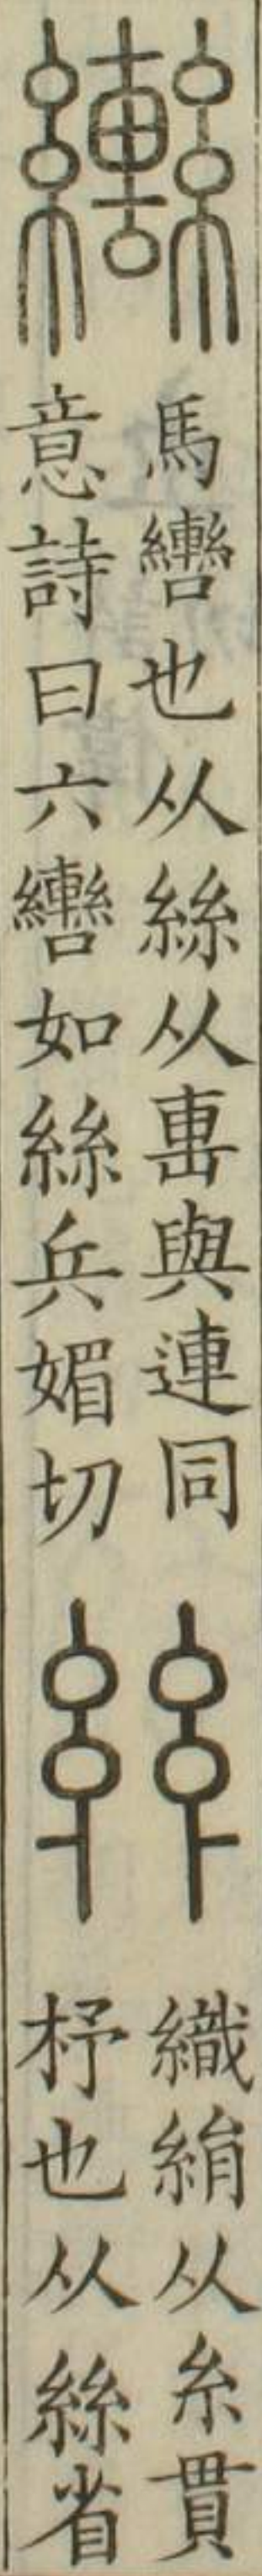 轡
馬轡也从絲从軎與連同
意詩曰六轡如絲兵媚切
𢇁
織絹从糸貫
杼也从絲省